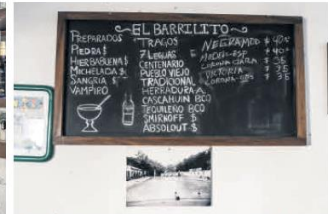 EL BARRILITO
PREPARADOS
PIEDRA $
HIERBABUENA $
MICHELADA $
SANGRIA $
VAMPIRO
TRAGOS
7 LEGUAS
CENTENARIO
PUEBLO VIEJO
TRADICIONAL
HERRADURA
CASCAHUIN BCO
TEQUILEÑO BCO
SMIRNOFF $
ABSOLOUT $
CORONA CLARA $ 35
VICTORIA $ 35